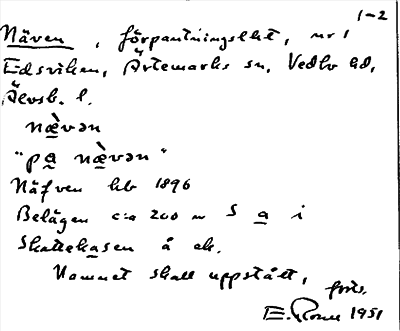 1-2
Näven, förpantningslht, nr 1
Edsviken, Ärtemarks sn, Vedbo hd,
Älvsb. l.
næ̀vən
"pa næ̀vən"
Näfven hb 1896
Belägen c:a 200 m S a i
Skattekasen å ek.
Namnet skall uppstått,
forts.
1951